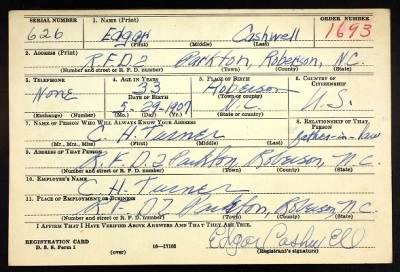 SERIAL NUMBER 1. NAME (Print) ORDER NUMBER
626 Edgar Cashwell 1693
(First) (Middle) (Last)
2. ADDRESS (Print)
R.F.D 2 Parkton, Roberson, N.C.
(Number and street or R. F. D. number) (Town) (County) (State)
3. TELEPHONE 4. AGE IN YEARS 5. PLACE OF BIRTH 6. COUNTRY OF CITIZENSHIP
None 33 Roberson
DATE OF BIRTH (Town or county)
5-29-1907 N.C. U.S.
(Exchange) (Number) (Mo.) (Day) (Yr.) (State or country)
7. NAME OF PERSON WHO WILL ALWAYS KNOW YOUR ADDRESS 8. RELATIONSHIP OF THAT PERSON
C. H. Turner father-in-law
(Mr., Mrs., Miss) (First) (Middle) (Last)
9. ADDRESS OF THAT PERSON
R.F.D. 2 Parkton, Roberson, N.C.
(Number and street or R. F. D. number) (Town) (County) (State)
10. EMPLOYER'S NAME
C. H. Turner
11. PLACE OF EMPLOYMENT OR BUSINESS
R.F.D 2 Parkton, Roberson, N.C.
(Number and street or R. F. D. number) (Town) (County) (State)
I AFFIRM THAT I HAVE VERIFIED ABOVE ANSWERS AND THAT THEY ARE TRUE.
REGISTRATION CARD Edgar Cashwell
D. S. S. Form 1 (over) 16-17105